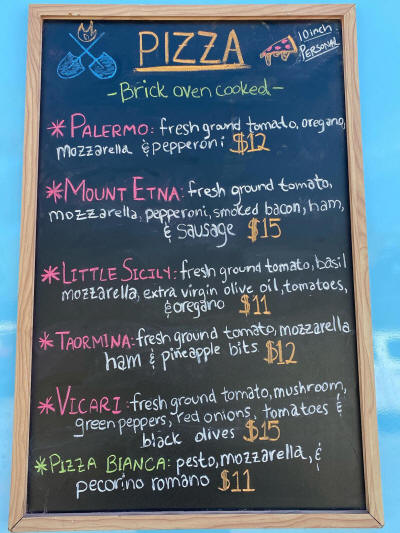 PIZZA
10 inch
PERSONAL
-Brick oven cooked-
*PALERMO: fresh ground tomato, oregano,
mozzarella & pepperoni $12
*MOUNT ETNA: fresh ground tomato,
mozzarella, pepperoni, smoked bacon, ham,
& sausage $15
*LITTLE SICILY: fresh ground tomato, basil
mozzarella, extra virgin olive oil, tomatoes,
& oregano $11
*TAORMINA: fresh ground tomato, mozzarella
ham & pineapple bits $12
*VICARI: fresh ground tomato, mushroom,
green peppers, red onions, tomatoes &
black olives $15
*PIZZA BIANCA: pesto, mozzarella, &
pecorino romano $11